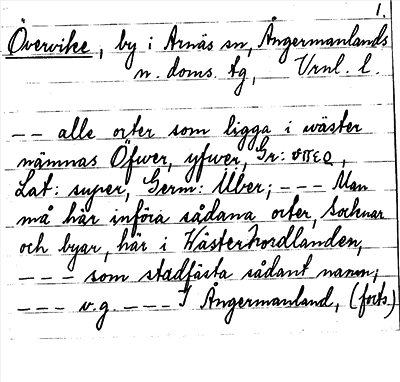 1.
Övervike, by i Arnäs sn, Ångermanlands
n. doms. tg, Vrnl. l.
-- alle orter som ligga i wäster
nämnas Öfwer, yfwer, Gr: υπερ,
Lat: super, Germ: Über; --- Man
må här införa sådana orter, Socknar
och byar, här i Wästernordlanden,
--- som stadfästa sådant namn;
--- v.g. --- I Ångermanland, (forts.)